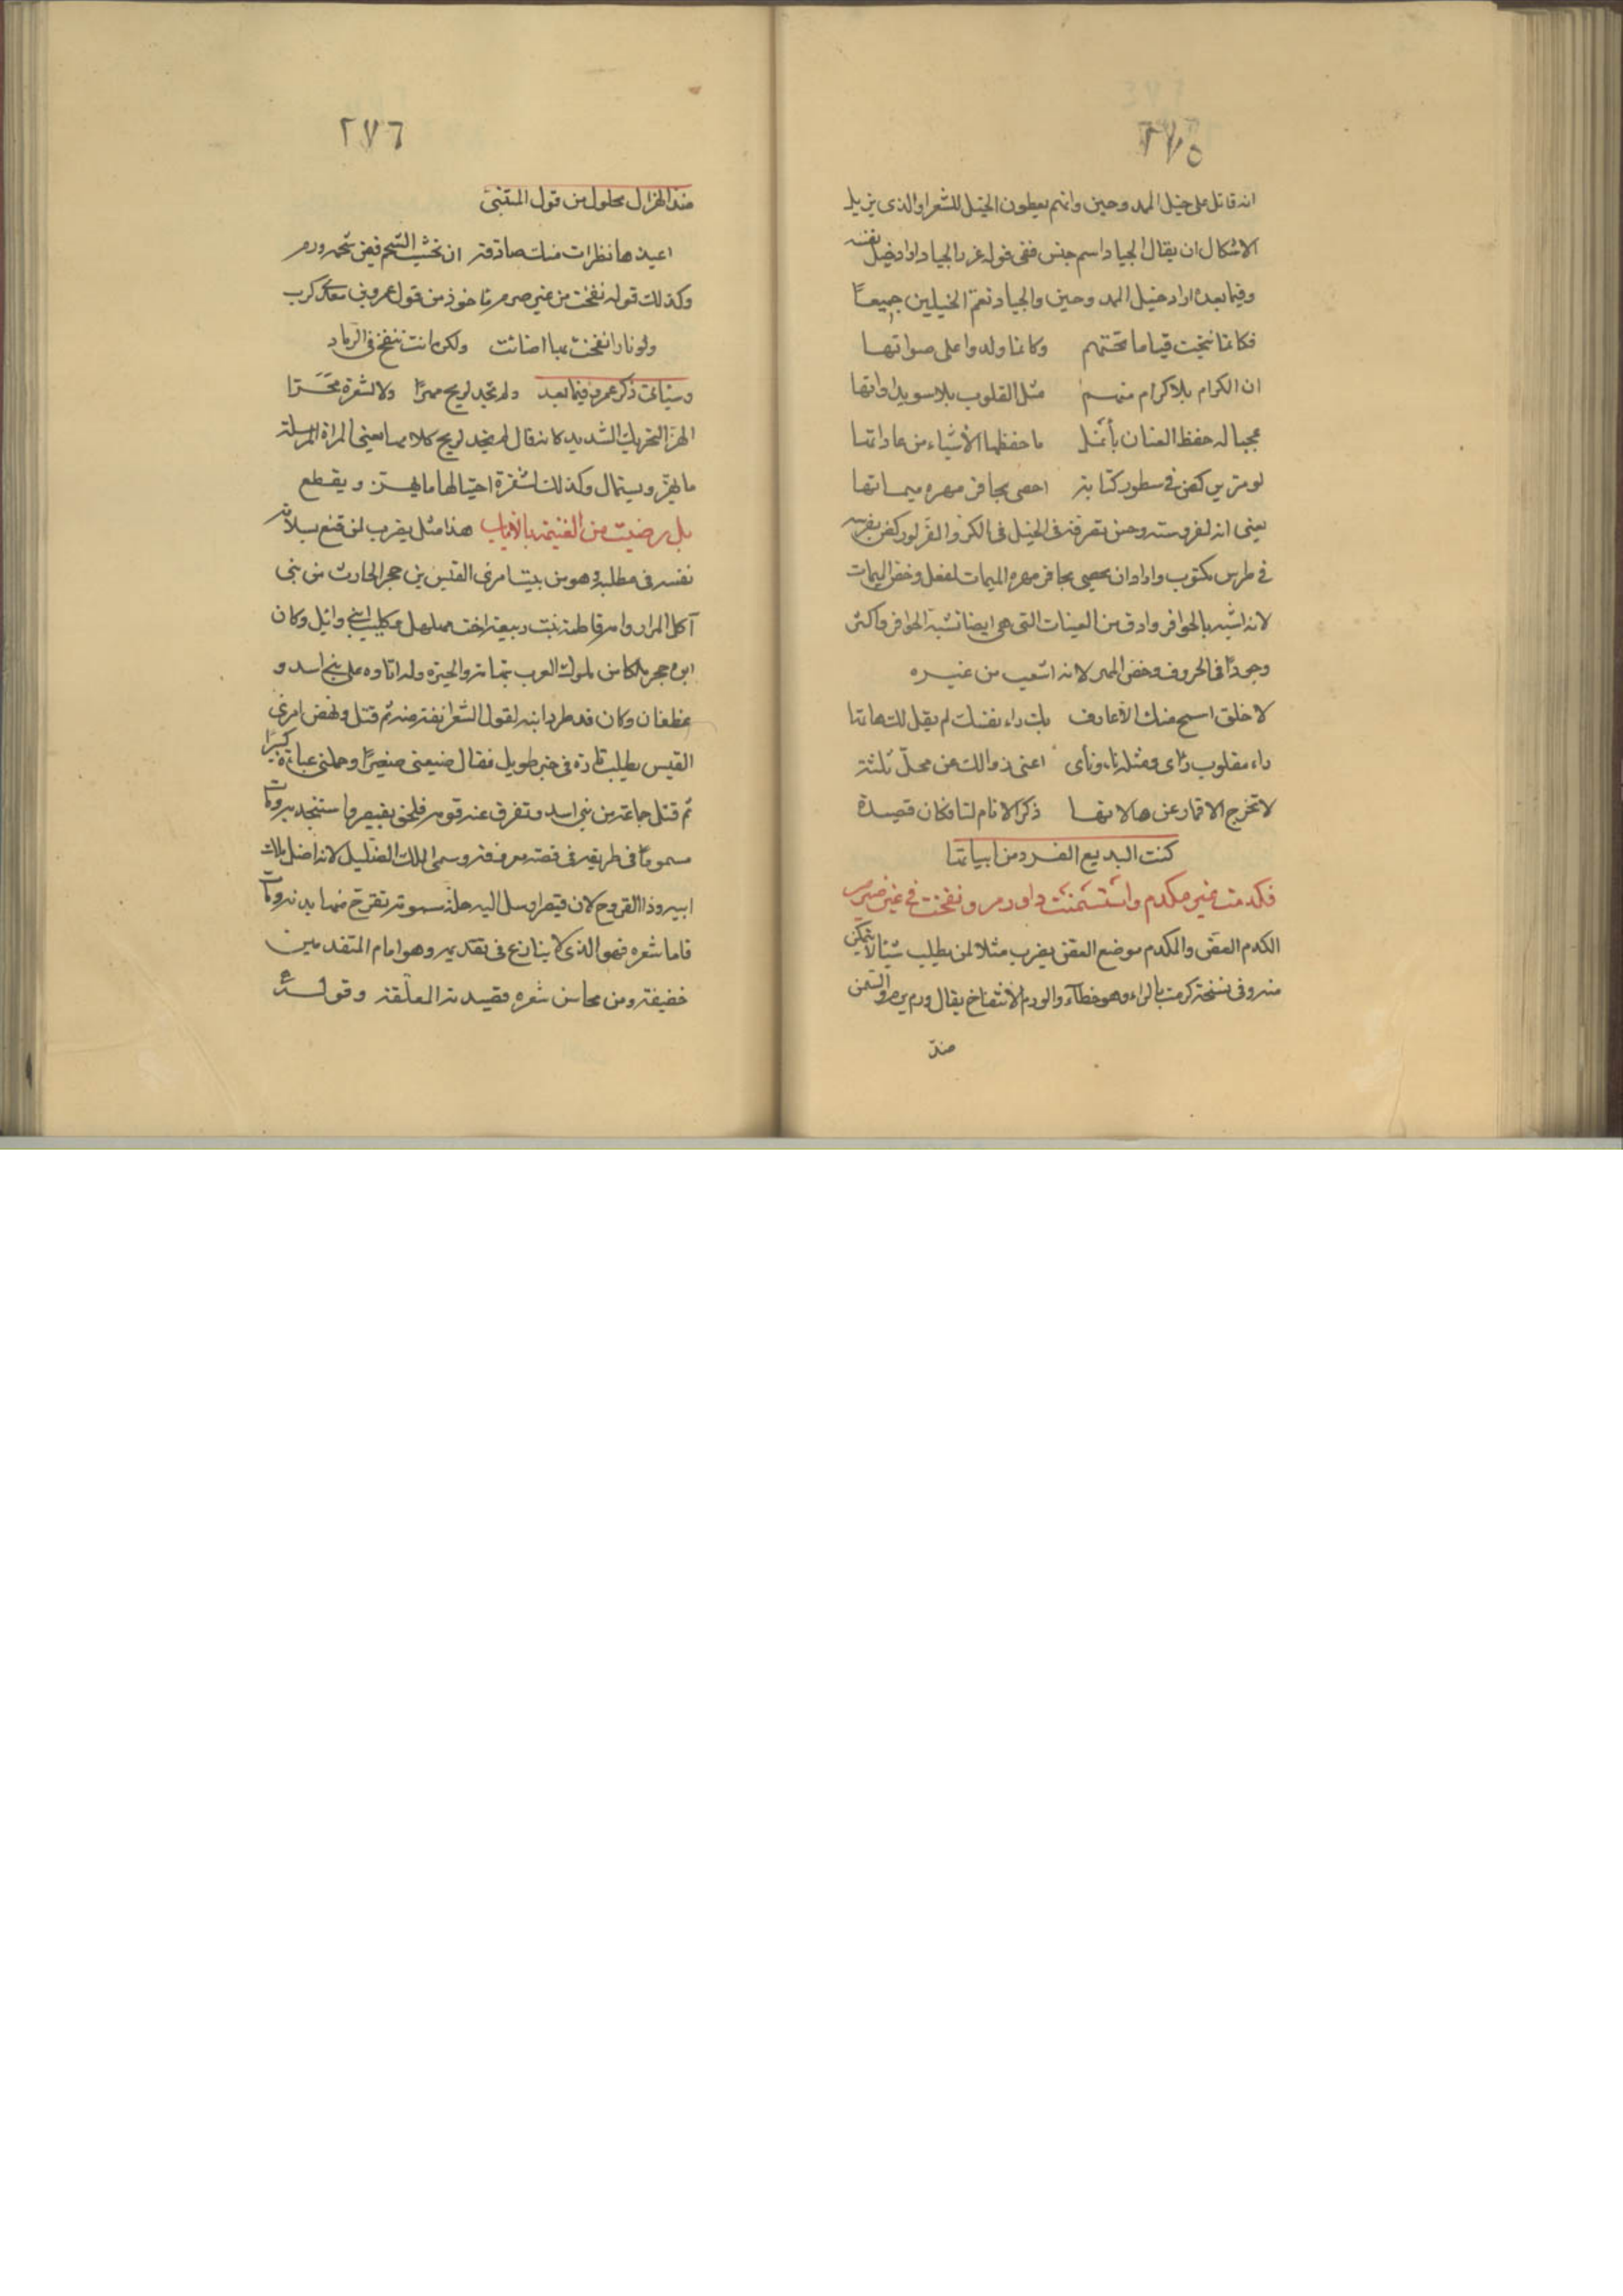 ٢٧٥
انه قاتل على خيل الممدوحين وانهم يعطون الخيل للشعرا والذى يزيل
الاشكال ان يقال الجياد اسم جنس ففى قوله غرر الجياد اراد خيل نفسه
وفيما بعده اراد خيل الممدوحين والجياد تعم الخيلين جميعًا
فكانما نتجت قياما تحتهم وكانما ولدوا على صهواتها
ان الكرام بلا كرام منهم مثل القلوب بلا سويداواتها
عجبا له حفظ العنان بأنمل ما حفظها الأشياء من عاداتها
لو مر يركض فى سطور كتابة احصى بحافر مهره ميماتها
يعنى انه لفروسته وحسن تصرفه فى الخيل فى الكر والفر لو ركض بفرسه
فى طرس مكتوب واراد ان يحصى بحافر مهره الميمات لفعل وخص الميمات
لانه اشبه بالحوافر وادق من العينات التى هى ايضا تشبه الحوافر واكثر
وجودًا فى الحروف وخص المهر لانه اشعب من غيره
لا خلق اسمح منك الا عارف بك راء نفسك لم يقل لك هاتها
راء مقلوب رأى ومثله ناء ونأى اعنى ذوالك عن محل نلته
لا تخرج الاقمار عن هالاتها ذكر الانام لنا فكان قصيدة
كنت البديع الفرد من ابياتها
فكدمت غير مكدم واستسمنت ذا ورم ونفخت فى غير ضرم
الكدم العض والمكدم موضع العض يضرب مثلا لمن يطلب شيئا لا يتمكن
منه وفى نسخة كرمت بالراء وهو خطآء والورم الانتفاخ يقال ورم يرم والسمن
ضد
٢٧٦
ضد الهزال محلول من قول المتنبى
اعيذها نظرات منك صادقة ان تحسب الشحم فيمن شحمه ورم
وكذلك قوله نفخت من غير ضرم مأخوذ من قول عمرو بن معدى كرب
ولو نارا نفخت بها اضائت ولكن انت تنفخ فى الرماد
وسيأتى ذكر عمرو فيما بعد ولم تجد لريح مهزًا ولا لشفرة محَزّا
الهز التحريك الشديد كانه قال لم تجد لريح كلامها يعنى المراة المرسلة
ما يهز ويستمال وكذلك لشفرة احتيالها ما يهتز ويقطع
بل رضيت من الغنيمة بالاياب هذا مثل يضرب لمن قنع بسلامة
نفسه فى مطلبه وهو من بيت امرئ القيس بن حجر الحارث من بنى
آكل المرار وامه فاطمة بنت ربيعة اخت مهلهل وكليب ابنى وائل وكان
ابوه حجر ملكا من ملوك العرب بتهامة والحيرة وله اتاوة على بنى اسد و
غطفان وكان قد طرد ابنه لقول الشعر انفة منه ثم قتل ونهض امرئ
القيس يطلب ثاره فى خبر طويل فقال ضيعنى صغيرًا وحملنى عباءه كبيرًا
ثم قتل جماعة من بنى اسد وتفرق عنه قومه فلحق بقيصر واستنجد به ومات
مسمومًا فى طريقه فى قصة معروفة وسمى الملك الضليل لانه اضل ملك
ابيه وذا القروح لان قيصر ارسل اليه حلة سمومة تقرح منها بدنه ومات
فاما شعره فهو الذى لا ينازع فى تقديمه وهو امام المتقدمين
خفيفة ومن محاسن شعره قصيدته المعلقة وقوله